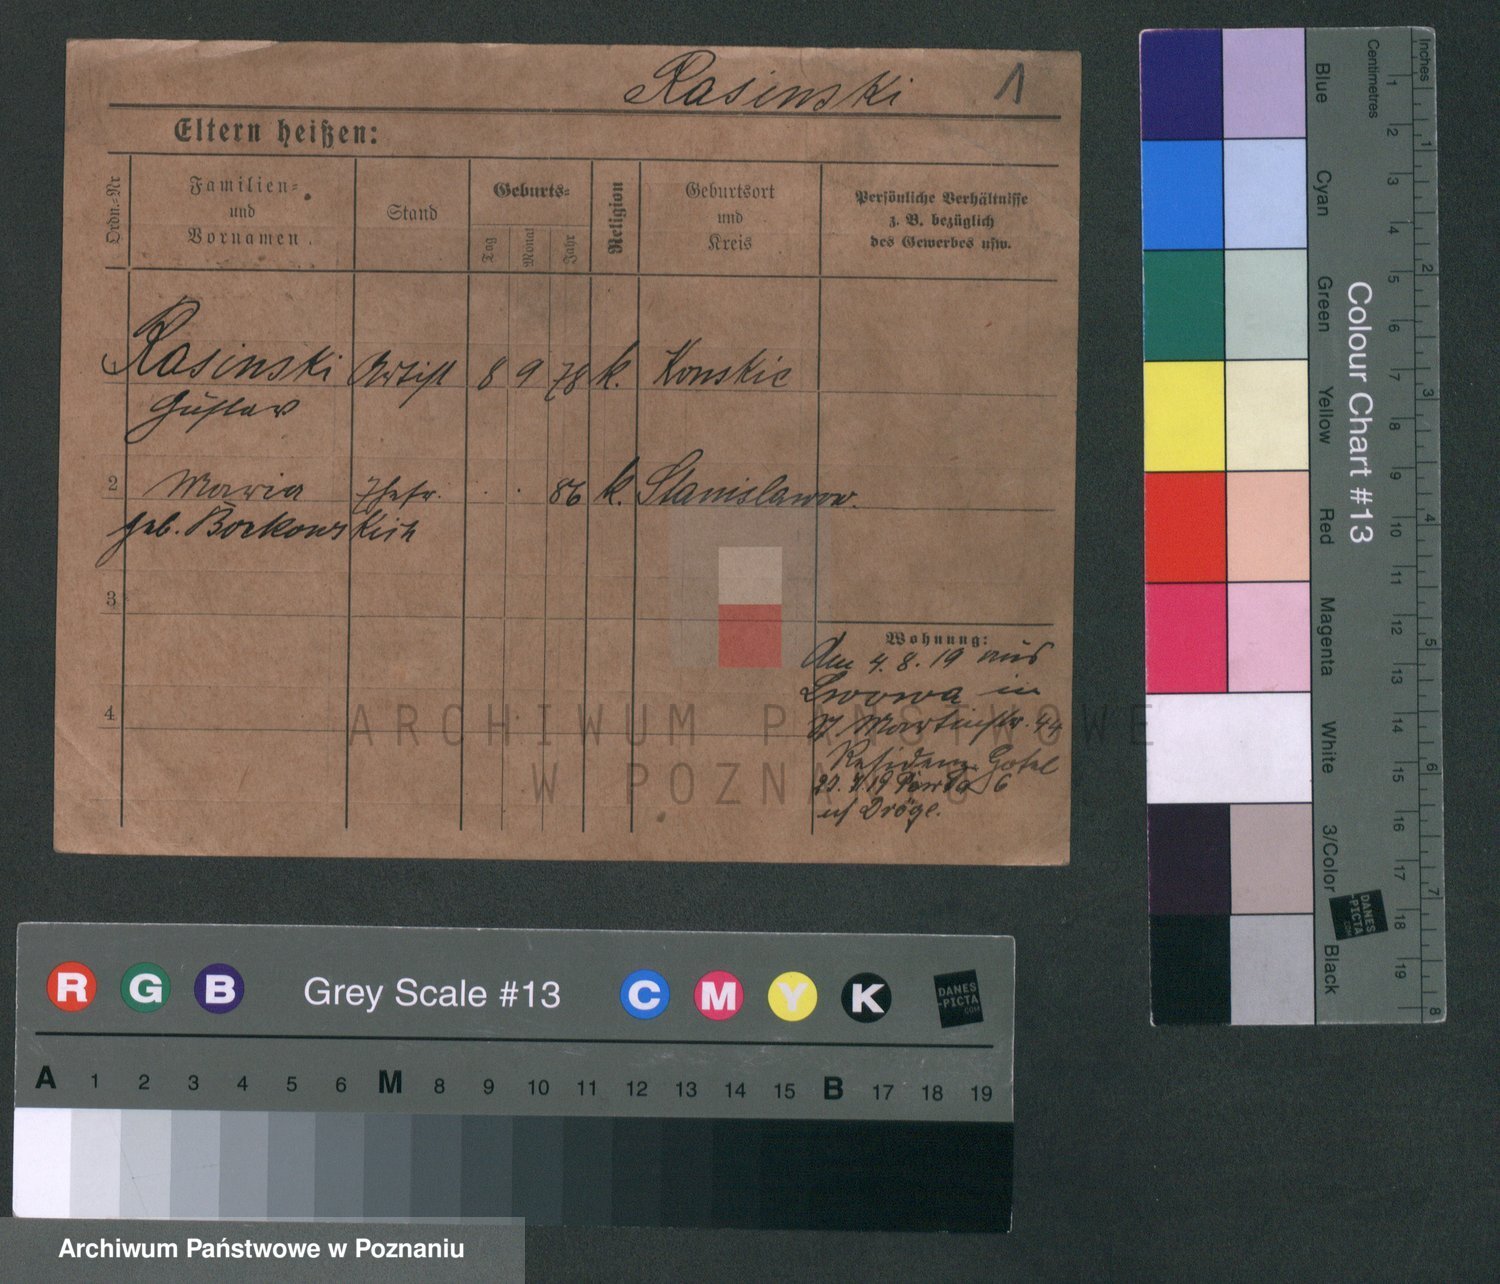 Rasinski 1
Eltern heißen:
Ordn.-Nr
Familien-
und
Vornamen.
Stand
Geburts-
Tag
Monat
Jahr
Religion
Geburtsort
und
Kreis
Persönliche Verhältnisse
z. B. bezüglich
des Gewerbes usw.
Rasinski Artist 8 9 78 k. Konskie
Gustav
2 Maria Ehefr. . . 86 k. Stanislawow.
geb. Borkowskich
3
4
Wohnung:
Am 4. 8. 19 aus
Lwowa in
St Martinstr. 44
Residenz Hotel
6
Dröge.
ARCHIWUM PAŃSTWOWE
W POZNANIU
R G B Grey Scale #13 C M Y K
DANES
-PICTA
.COM
A 1 2 3 4 5 6 M 8 9 10 11 12 13 14 15 B 17 18 19
Colour Chart #13
Blue
Cyan
Green
Yellow
Red
Magenta
White
3/Color
Black
DANES
-PICTA
.COM
Centimetres
1 2 3 4 5 6 7 8 9 10 11 12 13 14 15 16 17 18 19
Inches
1 2 3 4 5 6 7 8
Archiwum Państwowe w Poznaniu